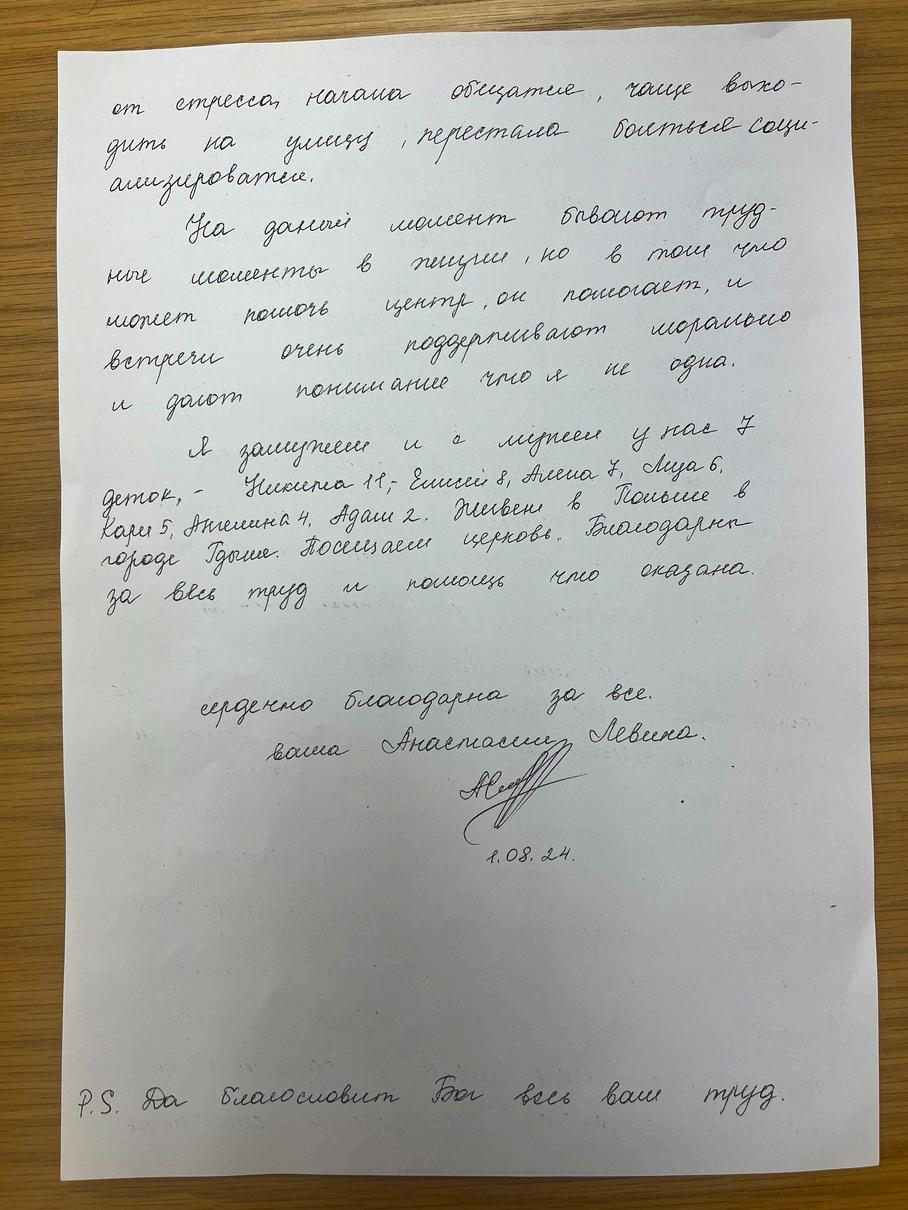 от стресса, начала общатся, чаще выхо-
дить на улицу, перестала боиться соци-
ализироватся.
На даный момент бывают труд-
ные моменты в жизни, но в том что
может помочь центр, он помогает, и
встречи очень поддерживают морально
и дают понимание что я не одна.
Я замужем и с мужем у нас 7
деток, - Никита 11, - Елисей 8, Алена 7, Лиза 6,
Карн 5, Ангелина 4, Адам 2. Живем в Польше в
городе Гдыне. Посещаем церковь. Благодарны
за весь труд и помощь что оказана.
серденно благодарна за все.
ваша Анастасия Левина.
1.08.24.
P.S. Да благословит Бог весь ваш труд.